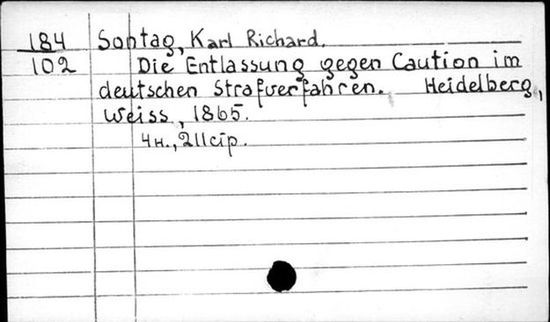 184 Sontag, Karl Richard.
102 Die Entlassung gegen Caution im
deutschen Strafverfahren. Heidelberg,
Weiss, 1865.
4н., 211стр.